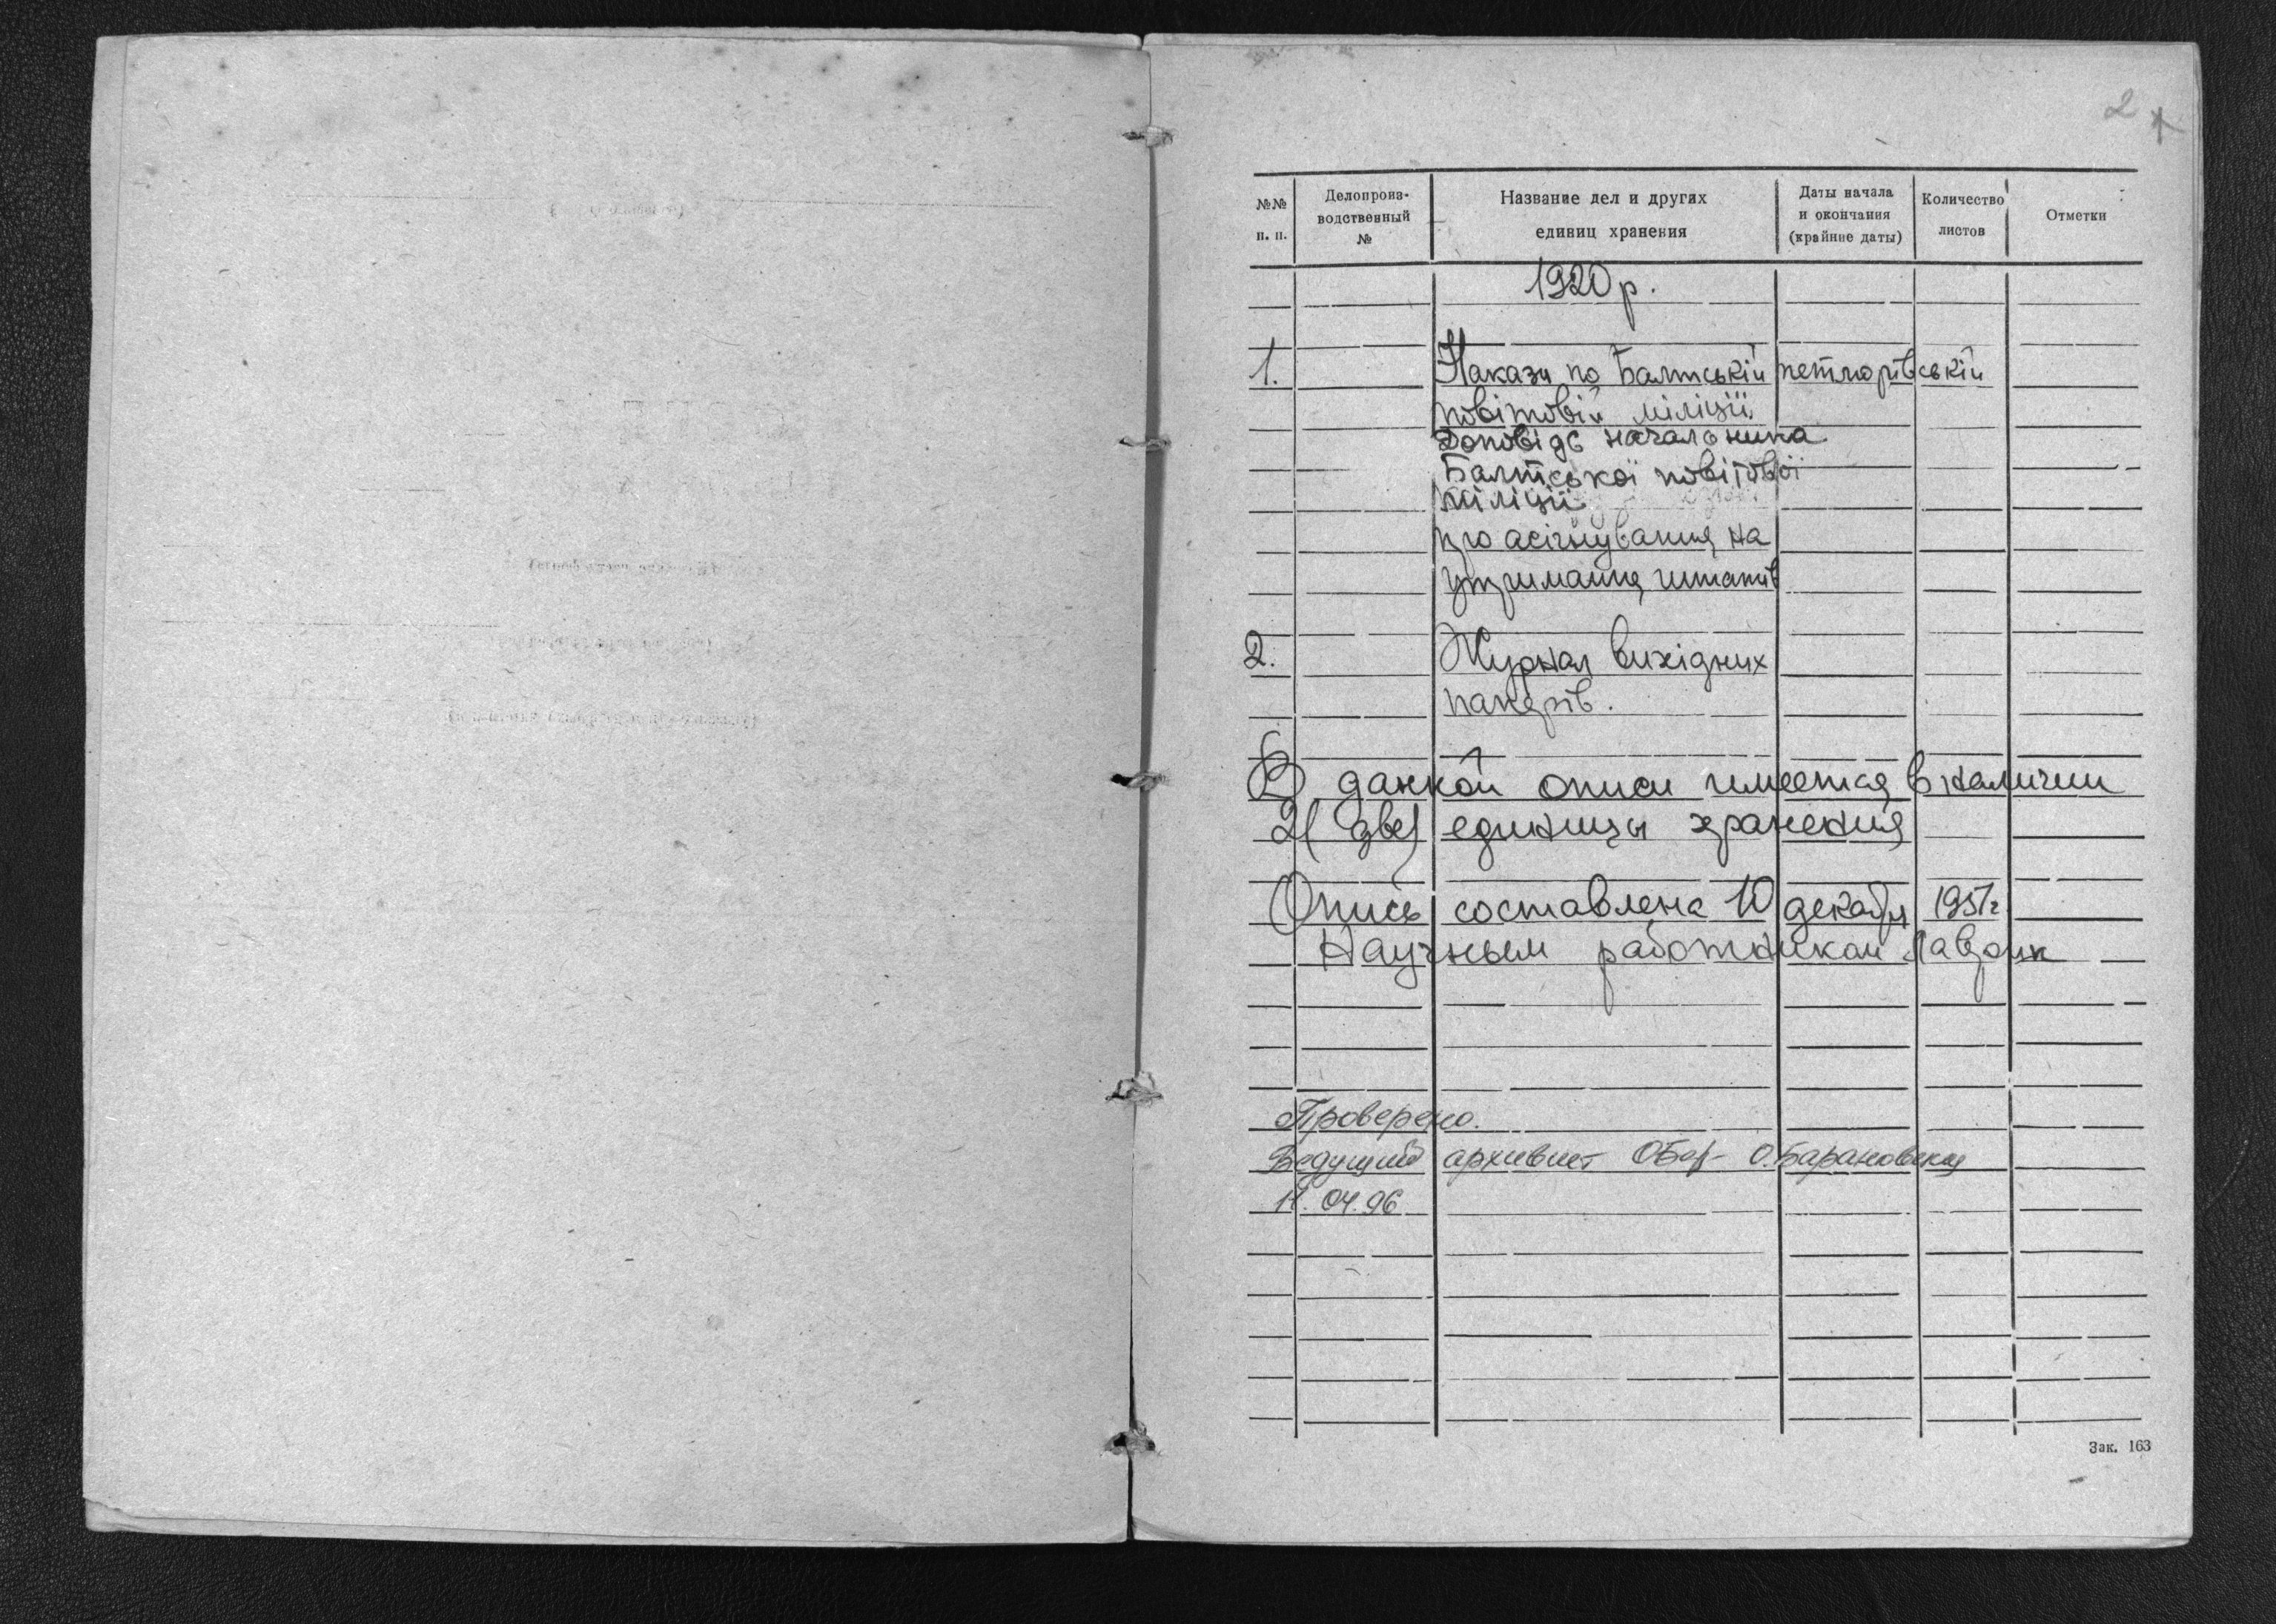 2
№№ п. п.
Делопроиз-
водственный
№
Название дел и других
единиц хранения
Даты начала
и окончания
(крайние даты)
Количество
листов
Отметки
1920 р.
1. Накази по Балтській петлюрівській
повітовій міліції.
Доповідь начальника
Балтської повітової
міліції
про асігнування на
утримання штатів
2. Журнал вихідних
паперів.
В данной описи имеется в наличии
2 (две) единицы хранения
Опись составлена 10 декабря 1957 г
Научным работником Лаврик
Проверено.
Ведущий архивист О. Барановская
11.04.96
Зак. 163